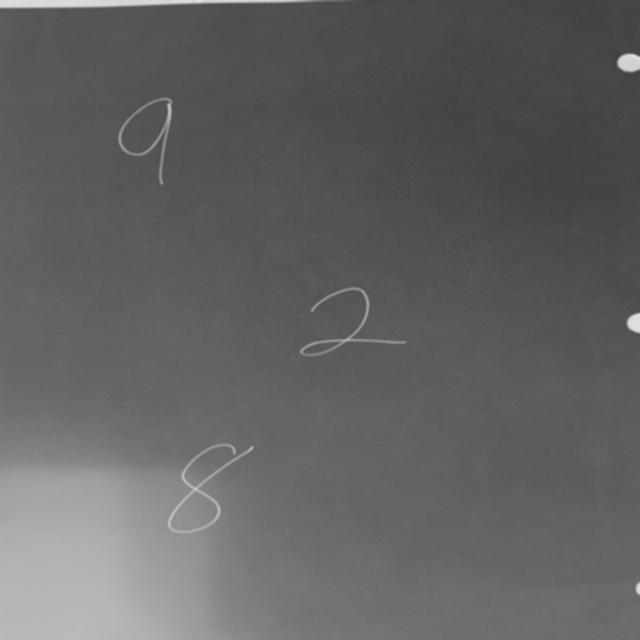 9
2
8